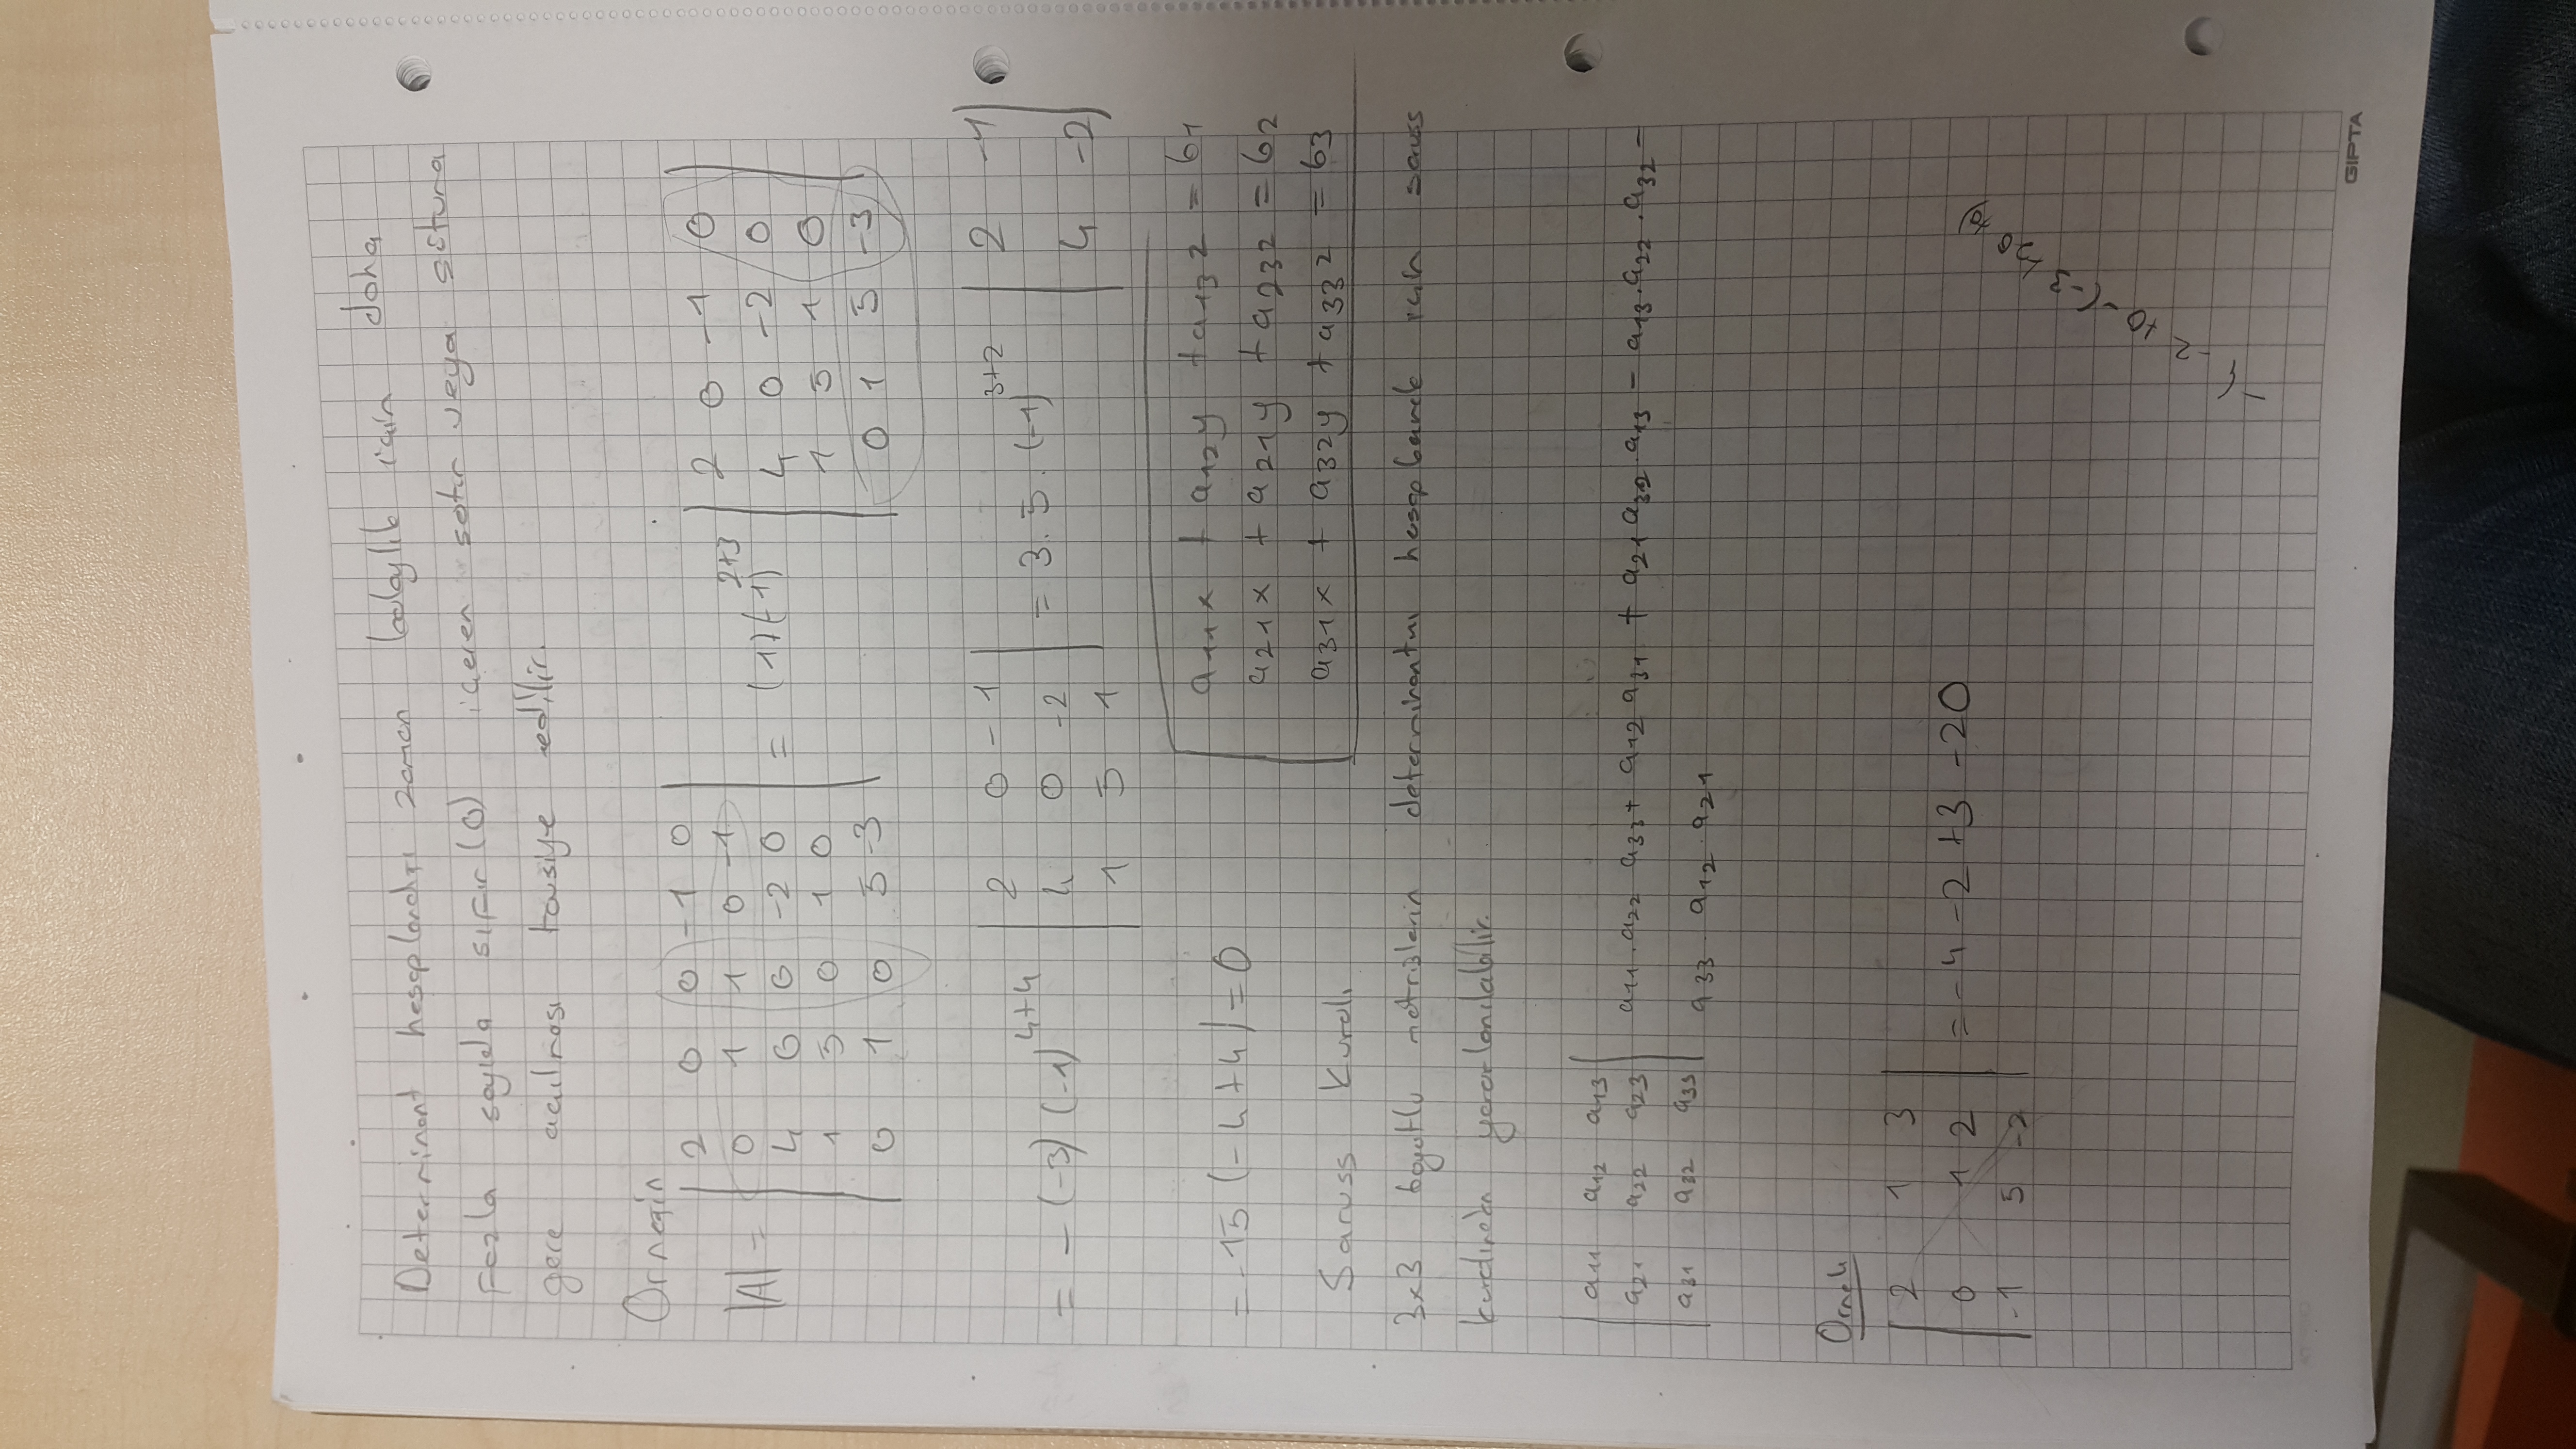 Determinant hesaplandığı zaman kolaylık için daha
fazla sayıda sıfır (0) içeren satır veya sütuna
göre açılması tavsiye edilir.
Örneğin
|A| = | 2 0 0 -1 0 | = (1)(-1)^2+3 | 2 0 -1 0 |
| 0 1 1 0 -1 | | 4 0 -2 0 |
| 4 0 0 -2 0 | | 1 5 1 0 |
| 1 5 0 1 0 | | 0 1 5 -3 |
| 0 1 0 5 -3 |
= -(-3)(-1)^4+4 | 2 0 -1 | = 3.5.(-1)^3+2 | 2 -1 |
| 4 0 -2 | | 4 -2 |
| 1 5 1 |
= -15 (-4+4) = 0
a11x + a12y + a13z = b1
a21x + a21y + a23z = b2
a31x + a32y + a33z = b3
Saruss Kuralı
3x3 boyutlu matrislerin determinantını hesaplamak için saruss
kuralından yararlanılabilir.
| a11 a12 a13 |
| a21 a22 a23 | a11.a22 a33 + a12 a31 + a21 a32.a13 - a13.a22.a32 -
| a31 a32 a33 | a33. a12.a21
Örnek
| 2 1 3 |
| 0 1 2 | = -4 -2 +3 -20
| -1 5 -2 |
-4 -2 +0 -(-3 +20 +0)
GIPTA